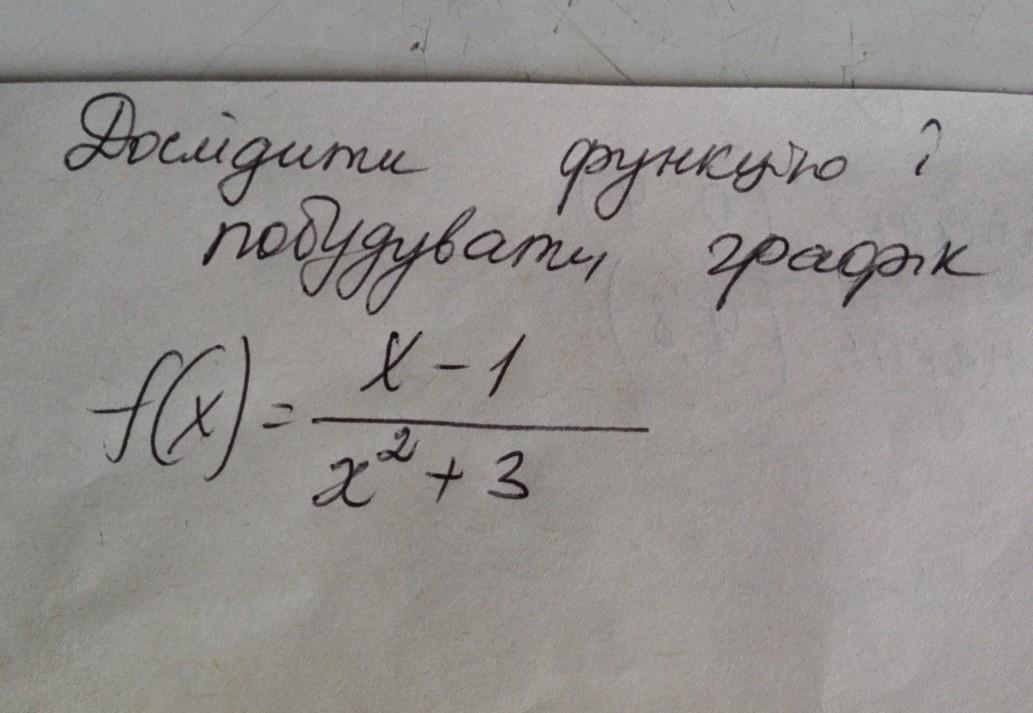 Дослідити функцію і
побудувати графік
f(x) = x - 1 / x² + 3